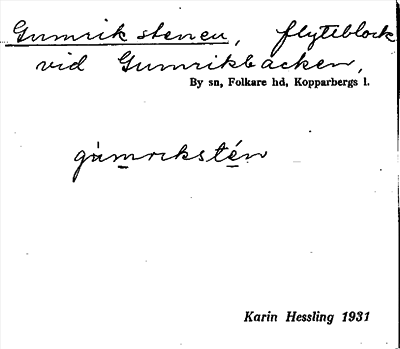 Gumrikstenen, flyttblock
vid Gumrikbacken,
By sn, Folkare hd, Kopparbergs l.
gùmrɩkstén
Karin Hessling 1931